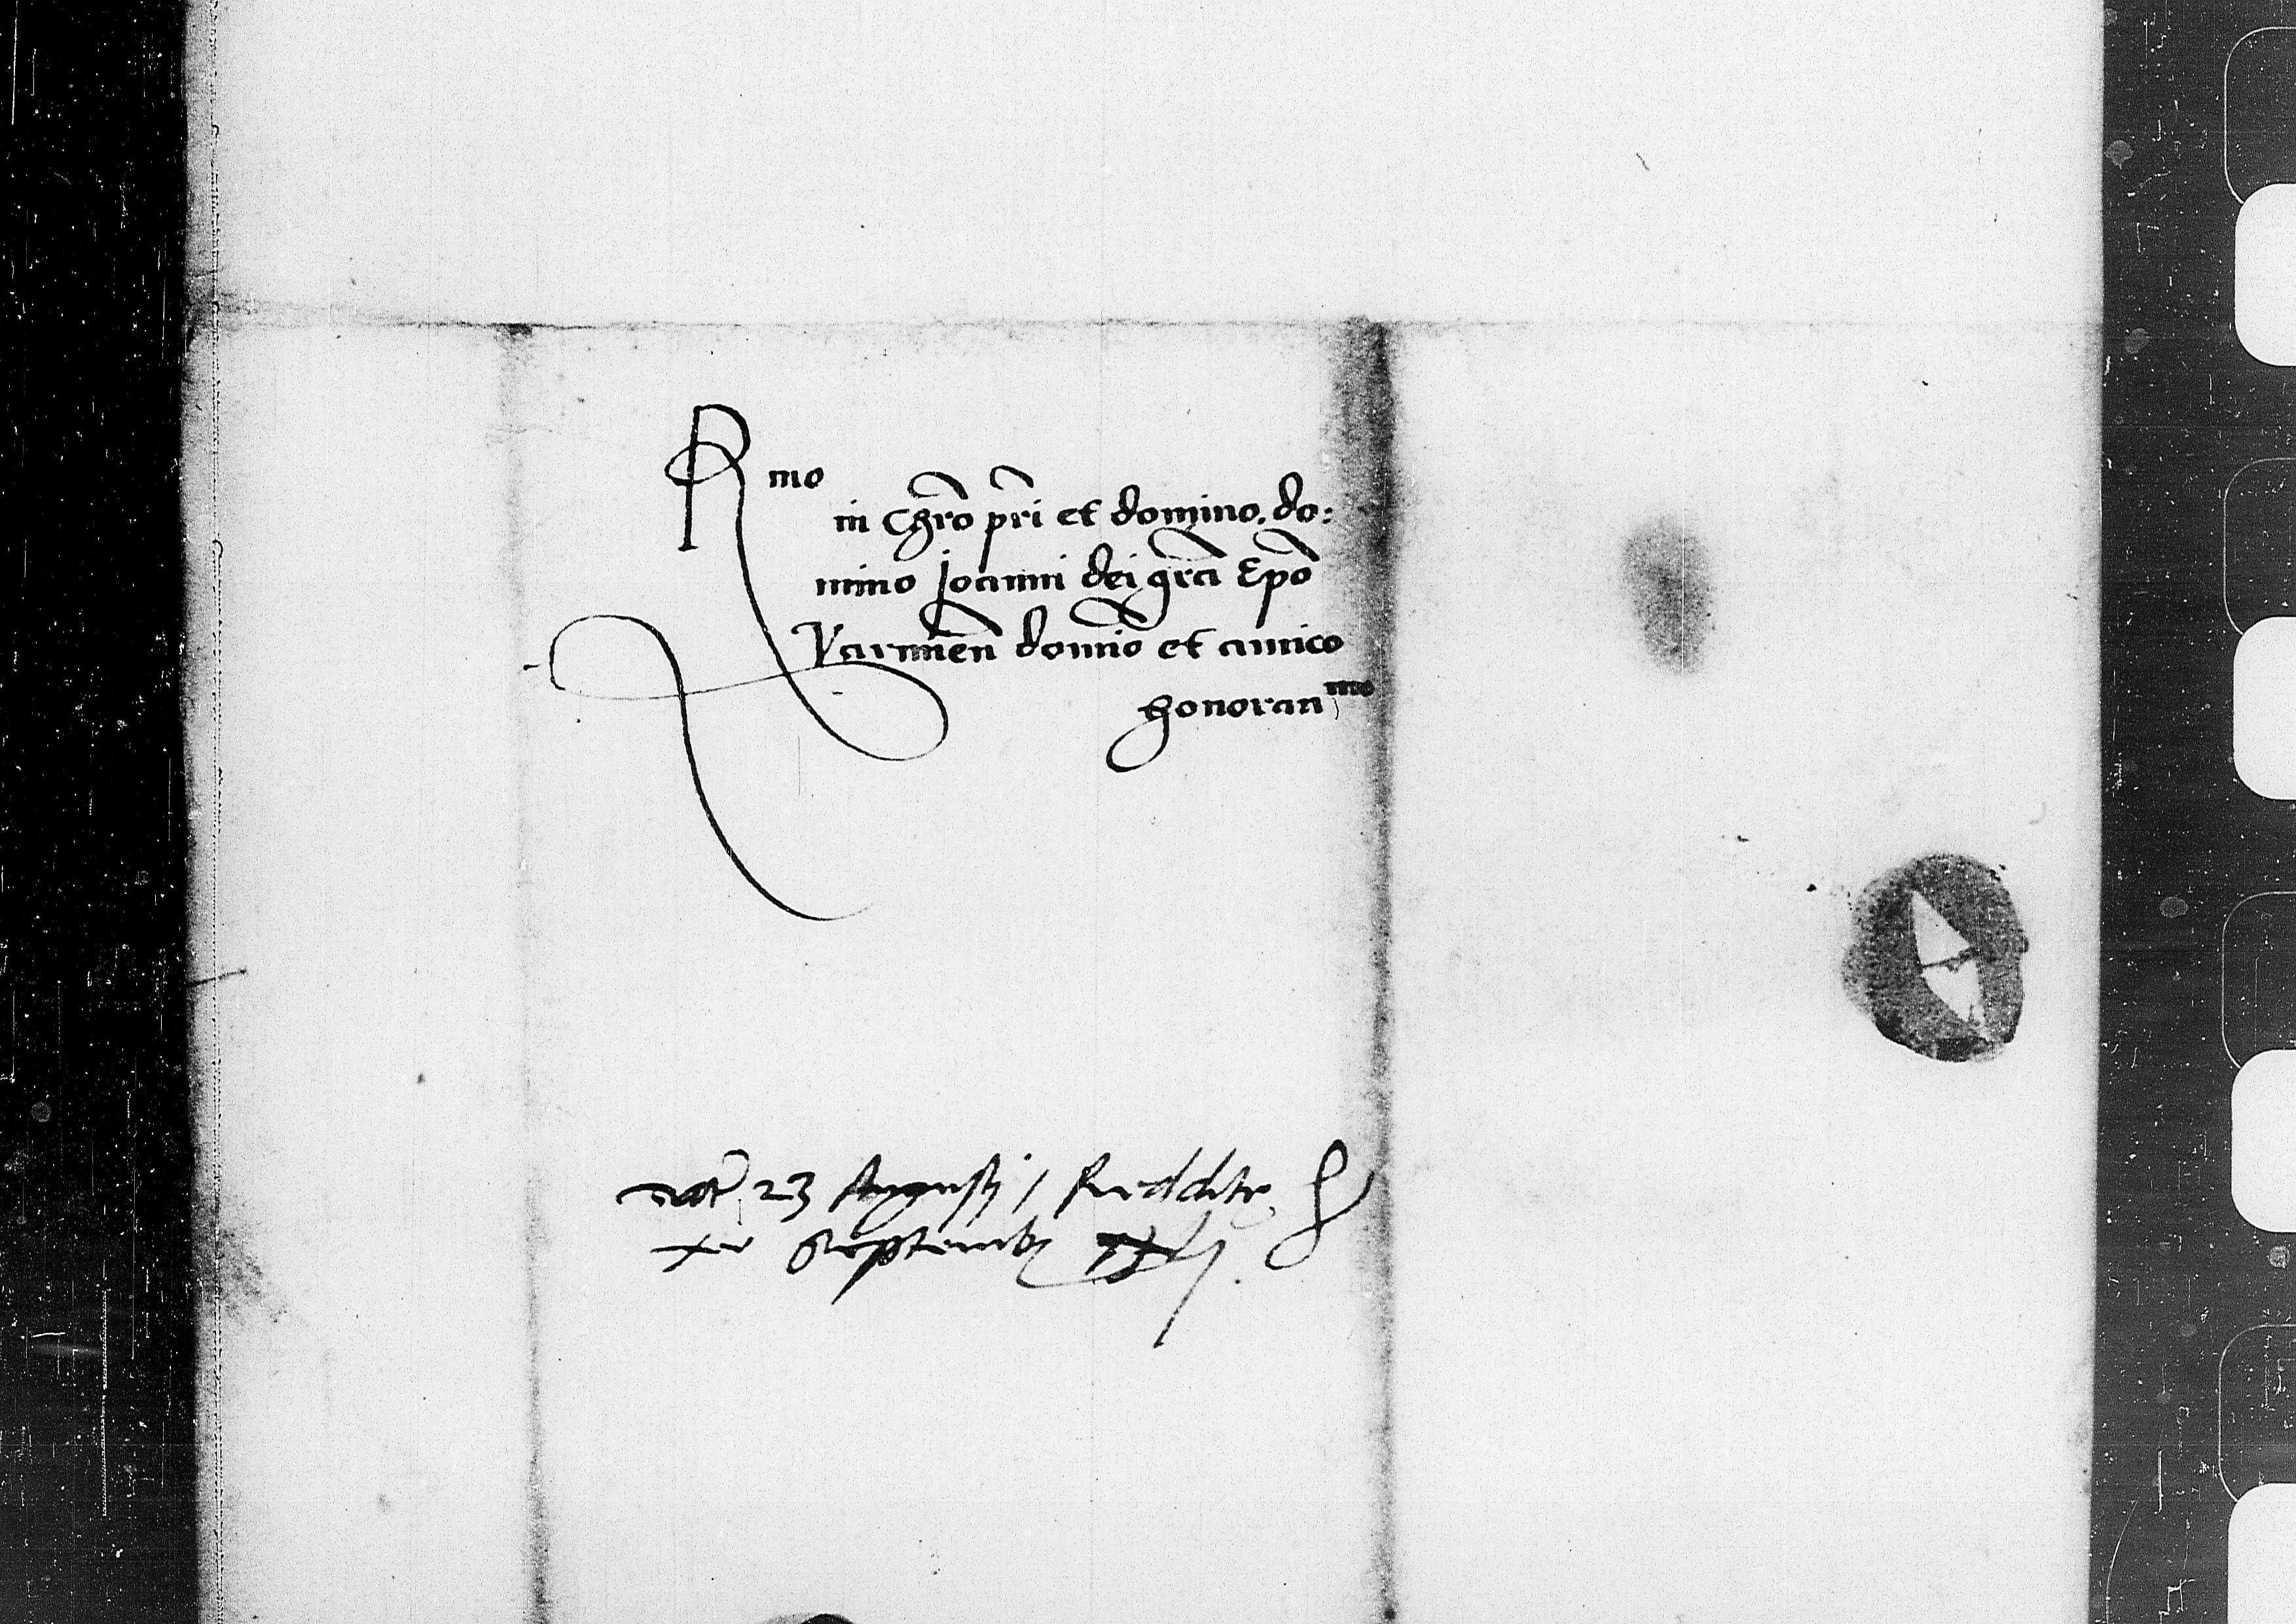 R mo
in Chr̄o pr̄i et domino, do:
mino Joanni dei gr̄a Ep̄o
Varmien̄ domīo et amico
honoran mo
23 Augusti / Reddite
Septemb